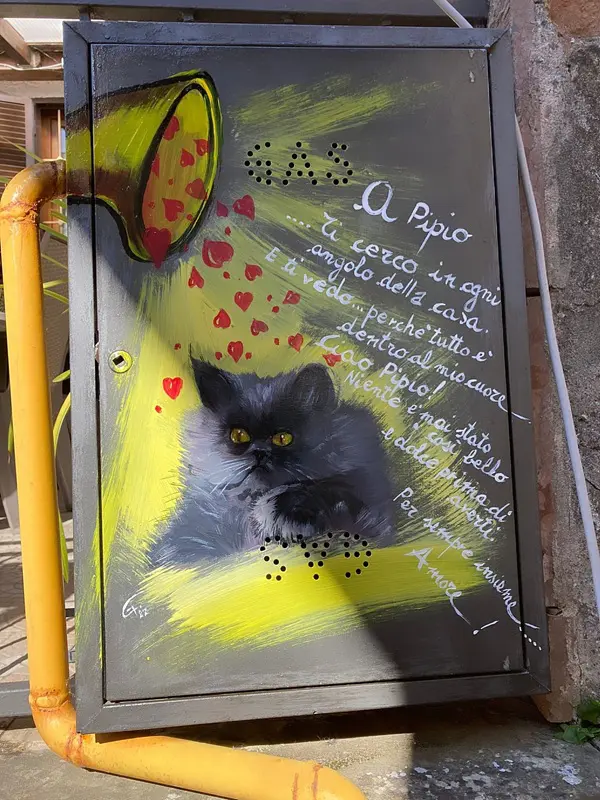 GAS
A Pipio
.... Ti cerco in ogni
angolo della casa.
E ti vedo... perche' tutto e'
dentro al mio cuore
Ciao Pipio!
Niente e' mai stato
così bello
e dolce prima di
averti
Per sempre insieme....
Amore!